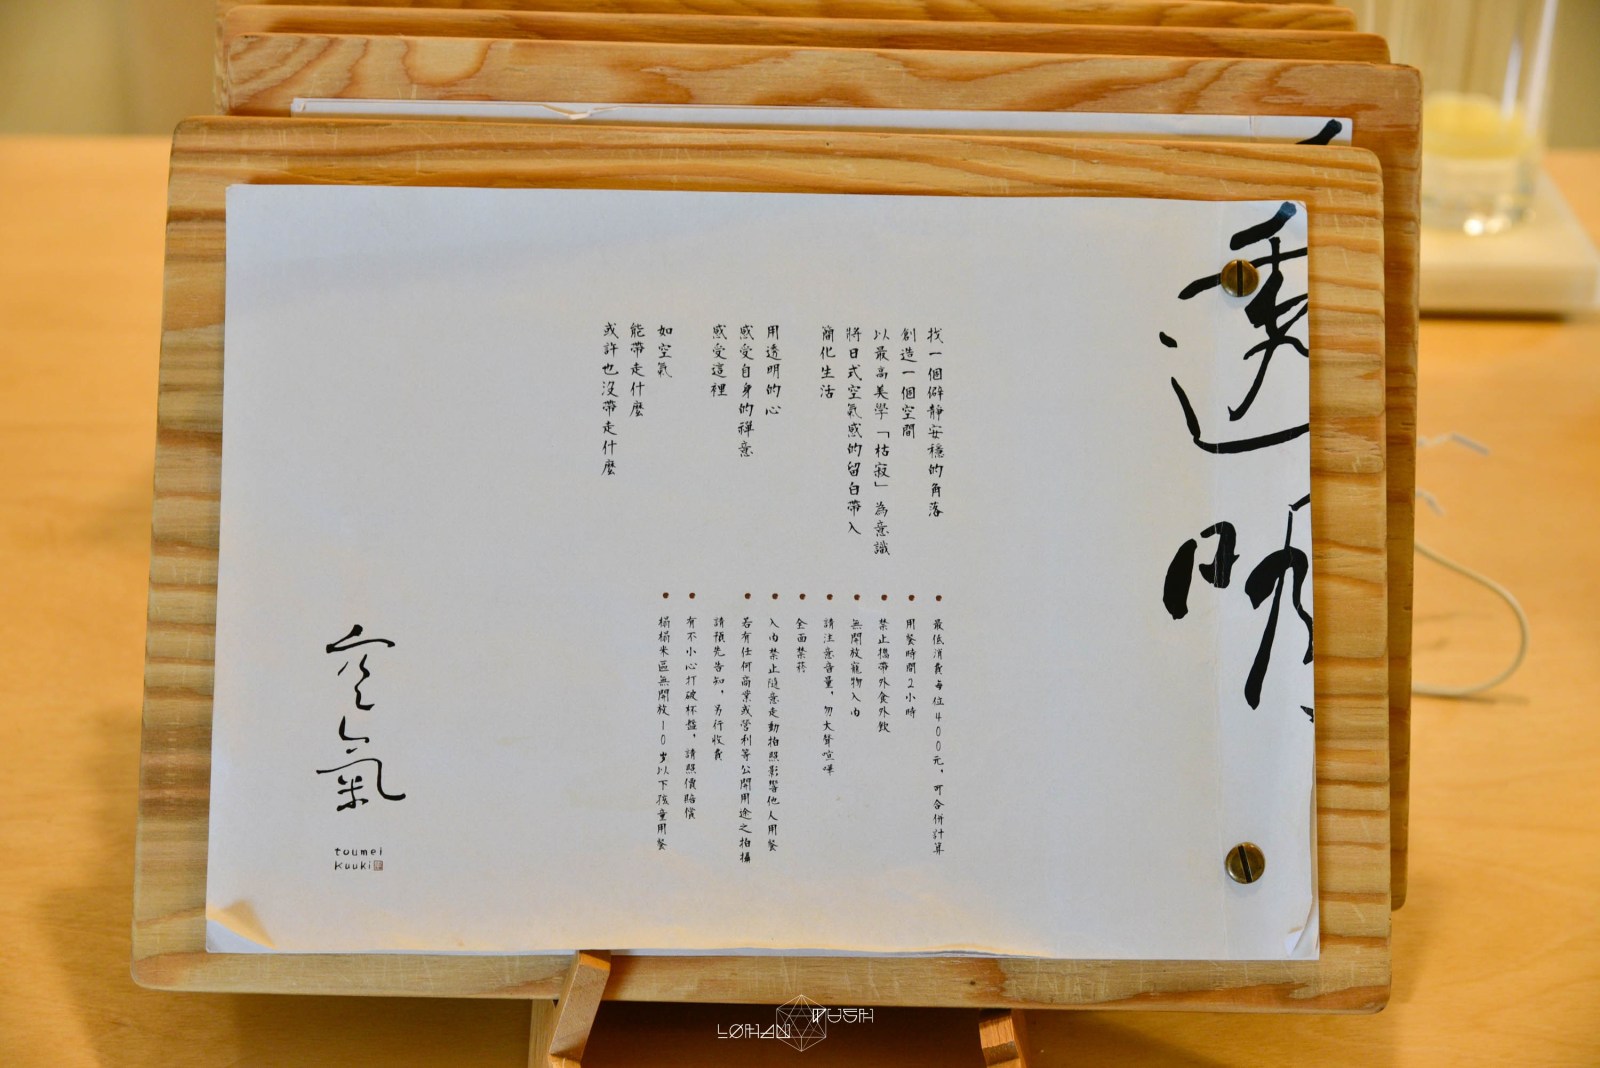 透明
找一個僻靜安穩的角落
創造一個空間
以最高美學「枯寂」為意識
將日式空氣感的留白帶入
簡化生活
用透明的心
感受自身的禪意
感受這裡
如空氣
能帶走什麼
或許也沒帶走什麼
• 最低消費每位400元，可合併計算
• 用餐時間2小時
• 禁止攜帶外食外飲
• 無開放寵物入內
• 請注意音量，勿大聲喧嘩
• 全面禁菸
• 入內禁止隨意走動拍照影響他人用餐
• 若有任何商業或營利等公開用途之拍攝
請預先告知，另行收費
• 有不小心打破杯盤，請照價賠償
• 榻榻米區無開放10歲以下孩童用餐
空氣
toumei
kuuki
LOHAN
TUSH